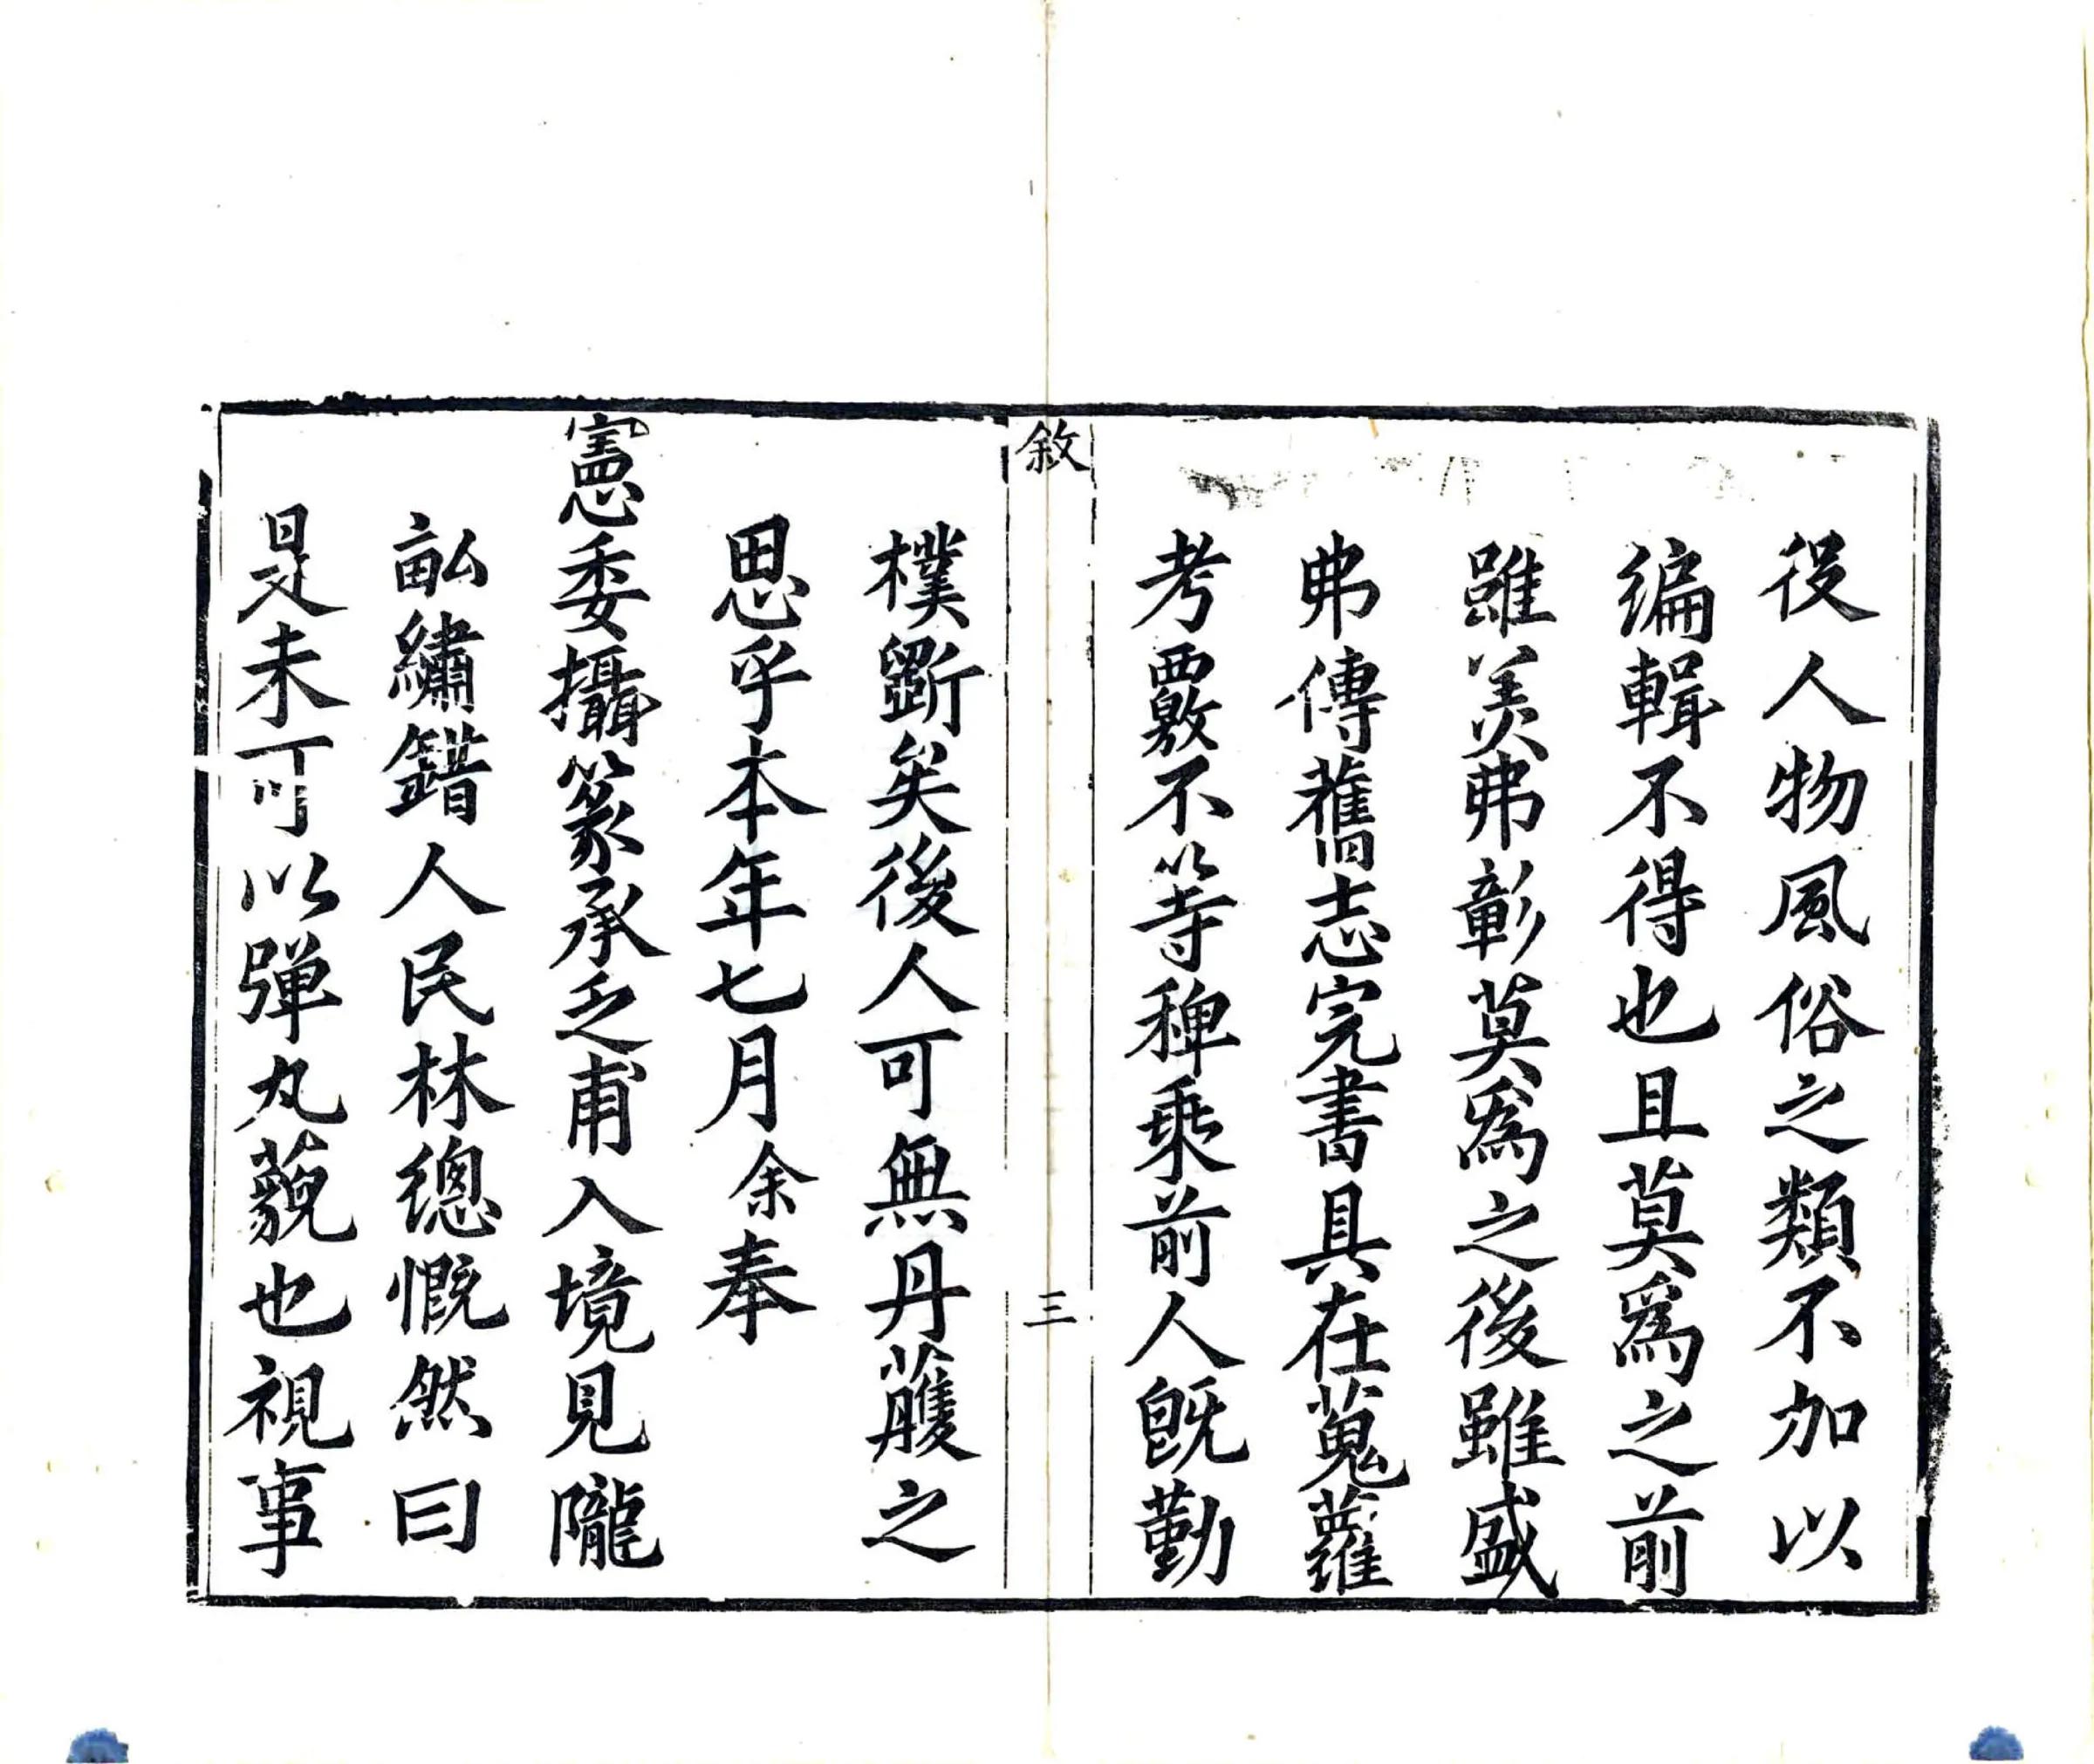 役人物風俗之類不加以
編輯不得也且莫爲之前
雖美弗彰莫爲之後雖盛
弗傳舊志完書具在蒐羅
考覈不等稗乘前人旣勤
敘
三
樸斲矣後人可無丹雘之
思乎本年七月余奉
憲委攝篆承乏甫入境見隴
畝繡錯人民林總慨然曰
是未可以彈丸藐也視事